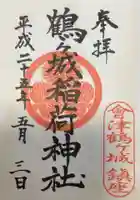 奉拝
鶴ヶ城稲荷神社
平成二十五年五月三日
會津鶴ヶ城鎮座